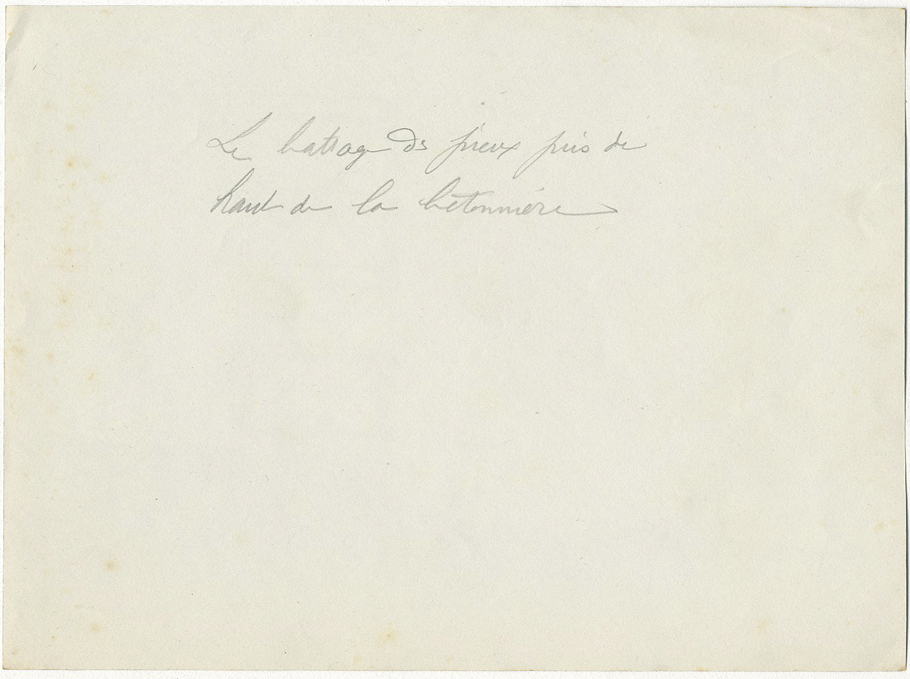 Le battage des pieux pris de
haut de la bétonnière